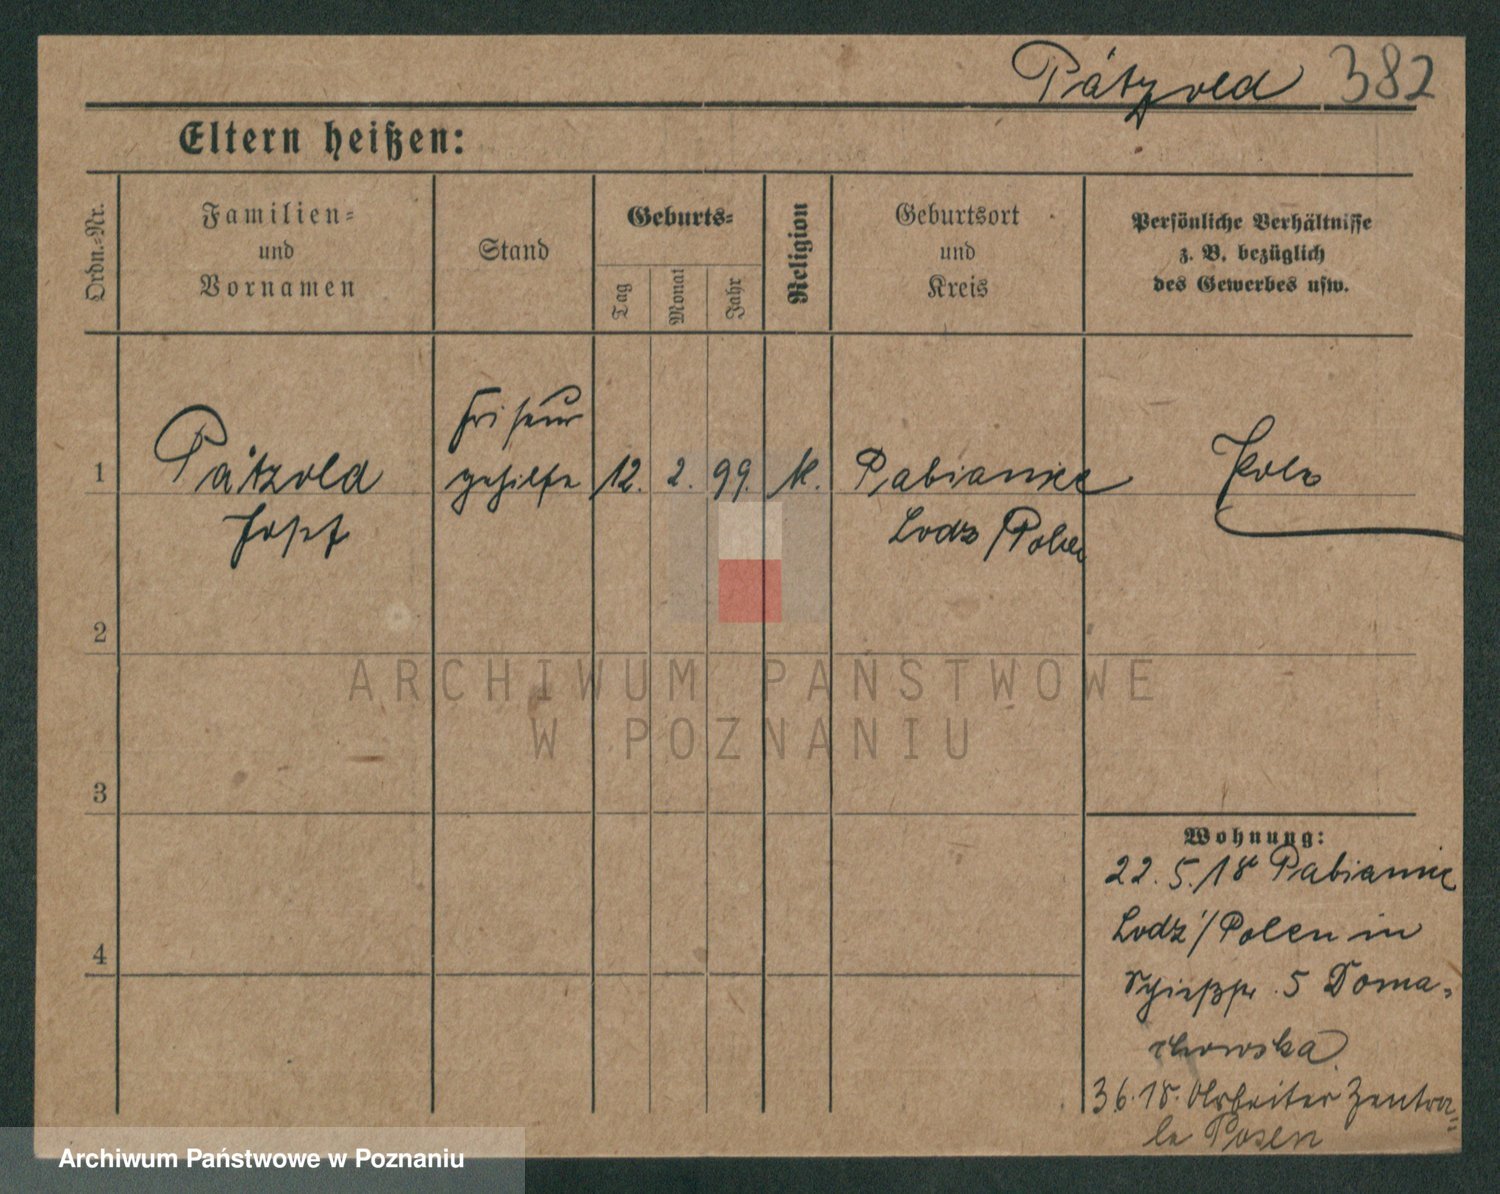 Pätzold 382
Eltern heißen:
Ordn.=Nr.
Familien=
und
Vornamen
Stand
Geburts=
Tag
Monat
Jahr
Religion
Geburtsort
und
Kreis
Persönliche Verhältnisse
z. B. bezüglich
des Gewerbes usw.
1
Pätzold
Josef
Friseur
gehilfe
12. 2. 99. K.
Pabianice
Lodz / Polen
Pole
2
3
4
Wohnung:
22. 5. 18 Pabianice
Lodz / Polen in
Schießstr. 5 Doma-
chowska
3 6. 18. Arbeiter Zentra=
le Posen
ARCHIWUM PAŃSTWOWE
W POZNANIU
Archiwum Państwowe w Poznaniu